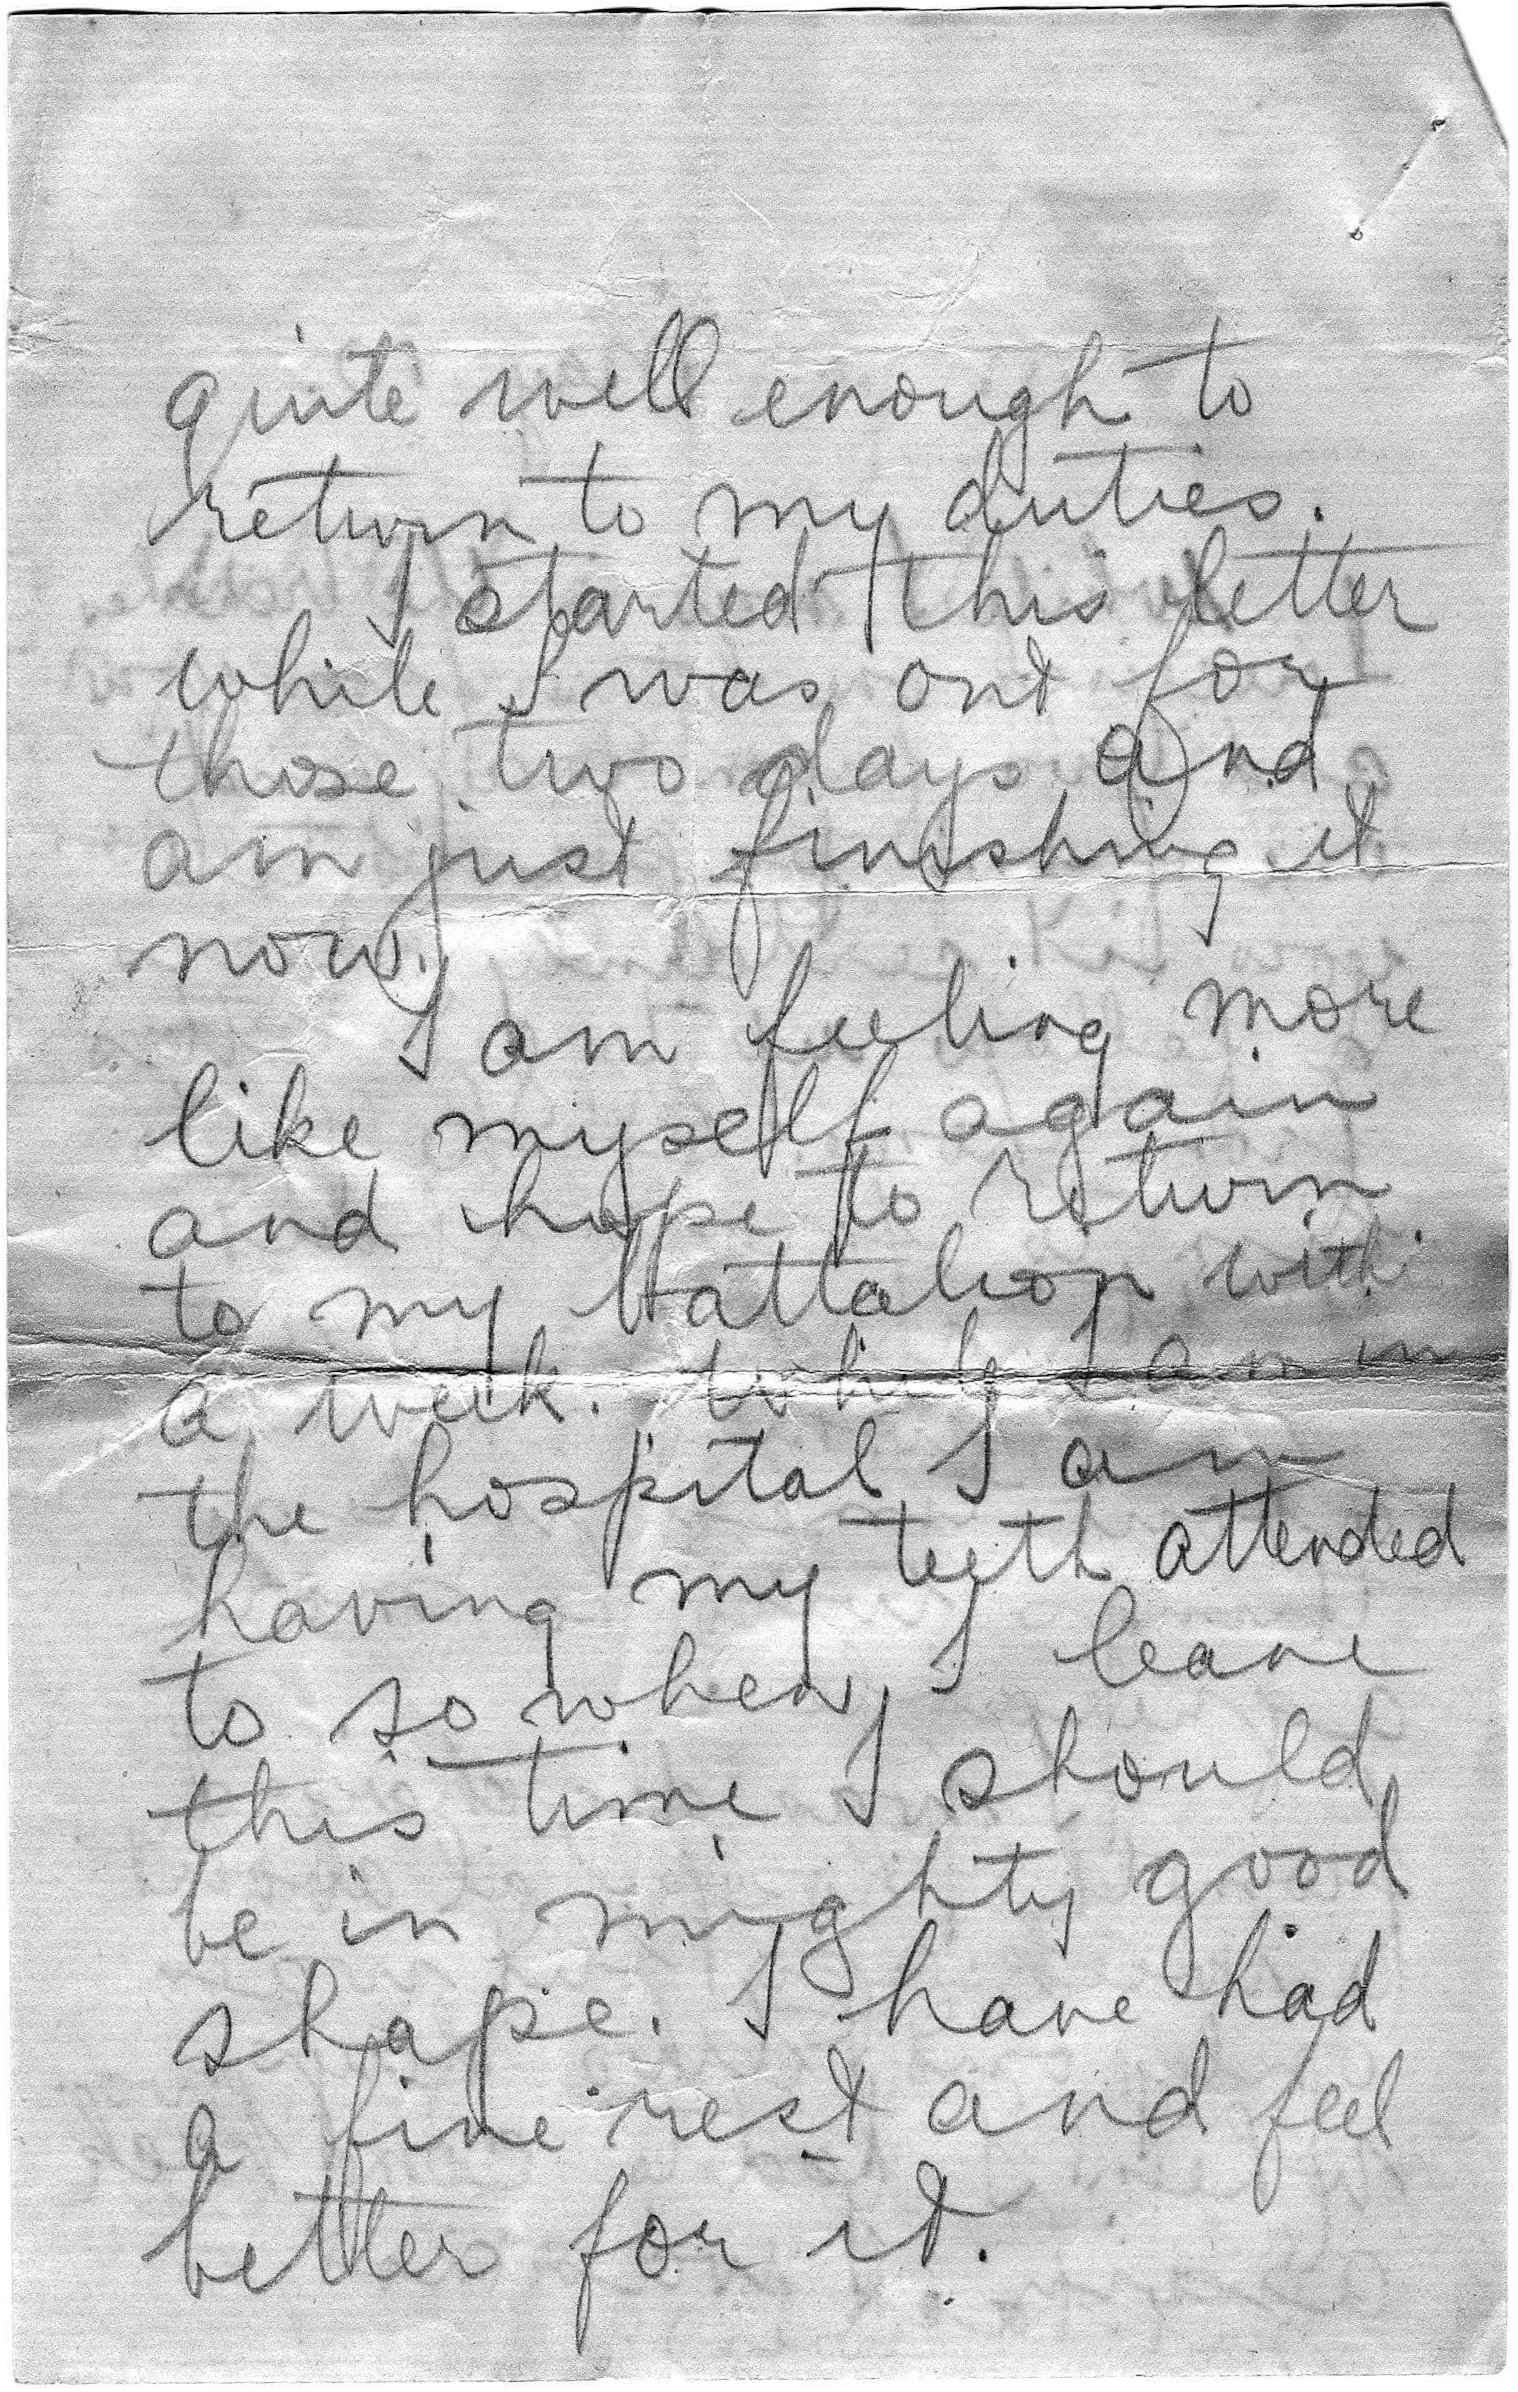 quite well enough to
return to my duties.
I started this letter
while I was out for
those two days and
am just finishing it
now.
I am feeling more
like myself again
and hope to return
to my battalion with
a week. While I am in
the hospital I am
having my teeth attended
to so when I leave
this time I should
be in mighty good
shape. I have had
a fine rest and feel
better for it.